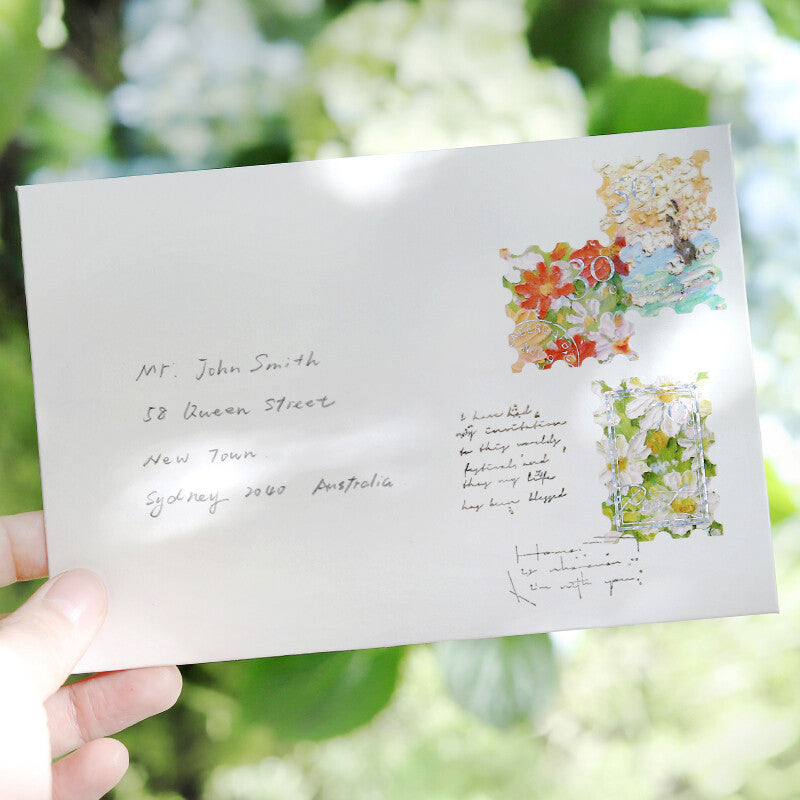 50
30
Mr. John Smith
58 Queen Street
New Town.
Sydney 2040 Australia
I have had
my invitation
to this worlds
festival, and
thus my life
has been blessed
Home:
is wherever
I'm with you.